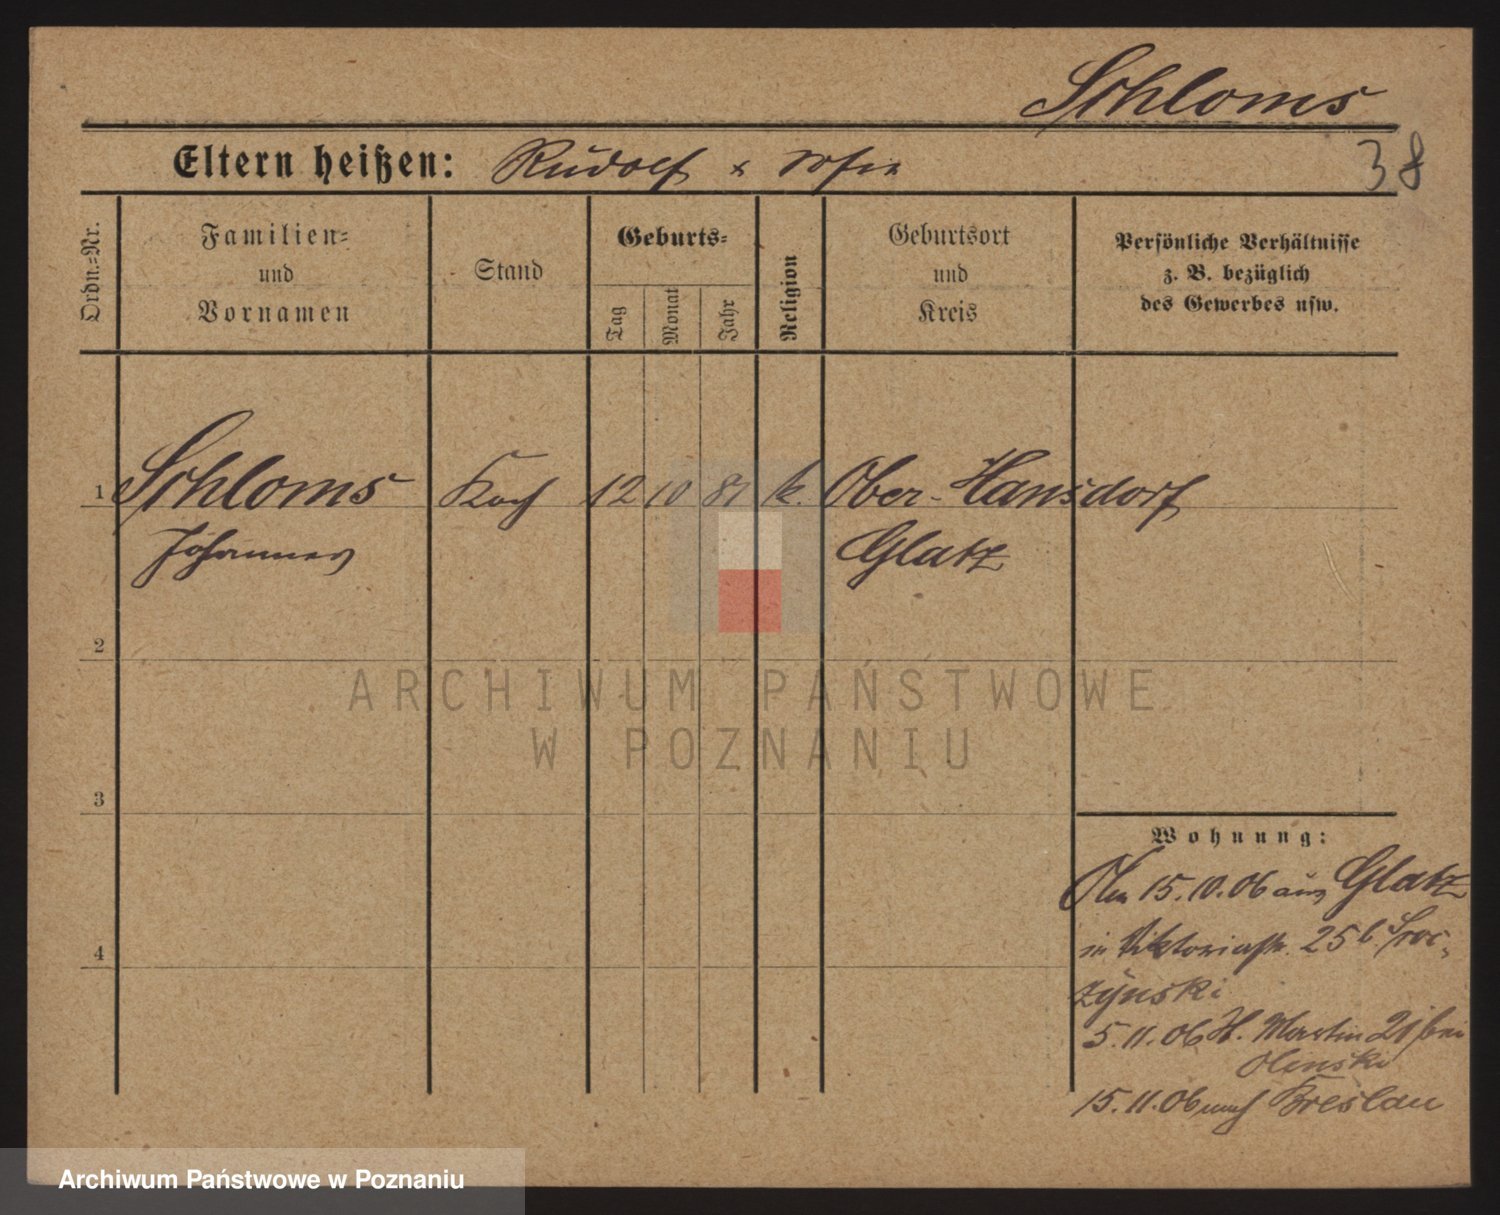 Schloms
Eltern heißen: Rudolf & Sofie
38
Ordn.=Nr.
Familien=
und
Vornamen
Stand
Geburts=
Tag
Monat
Jahr
Religion
Geburtsort
und
Kreis
Persönliche Verhältnisse
z. B. bezüglich
des Gewerbes usw.
1 Schloms Koch 12 10 87 k. Ober-Hansdorf
Johannes Glatz
2
ARCHIWUM PAŃSTWOWE
W POZNANIU
3
Wohnung:
15.10.06 aus Glatz
4
in Viktoriastr. 25 b.
zynski
5.11.06 St. Martin 21 bei
Olenski
15.11.06 nach Breslau
Archiwum Państwowe w Poznaniu